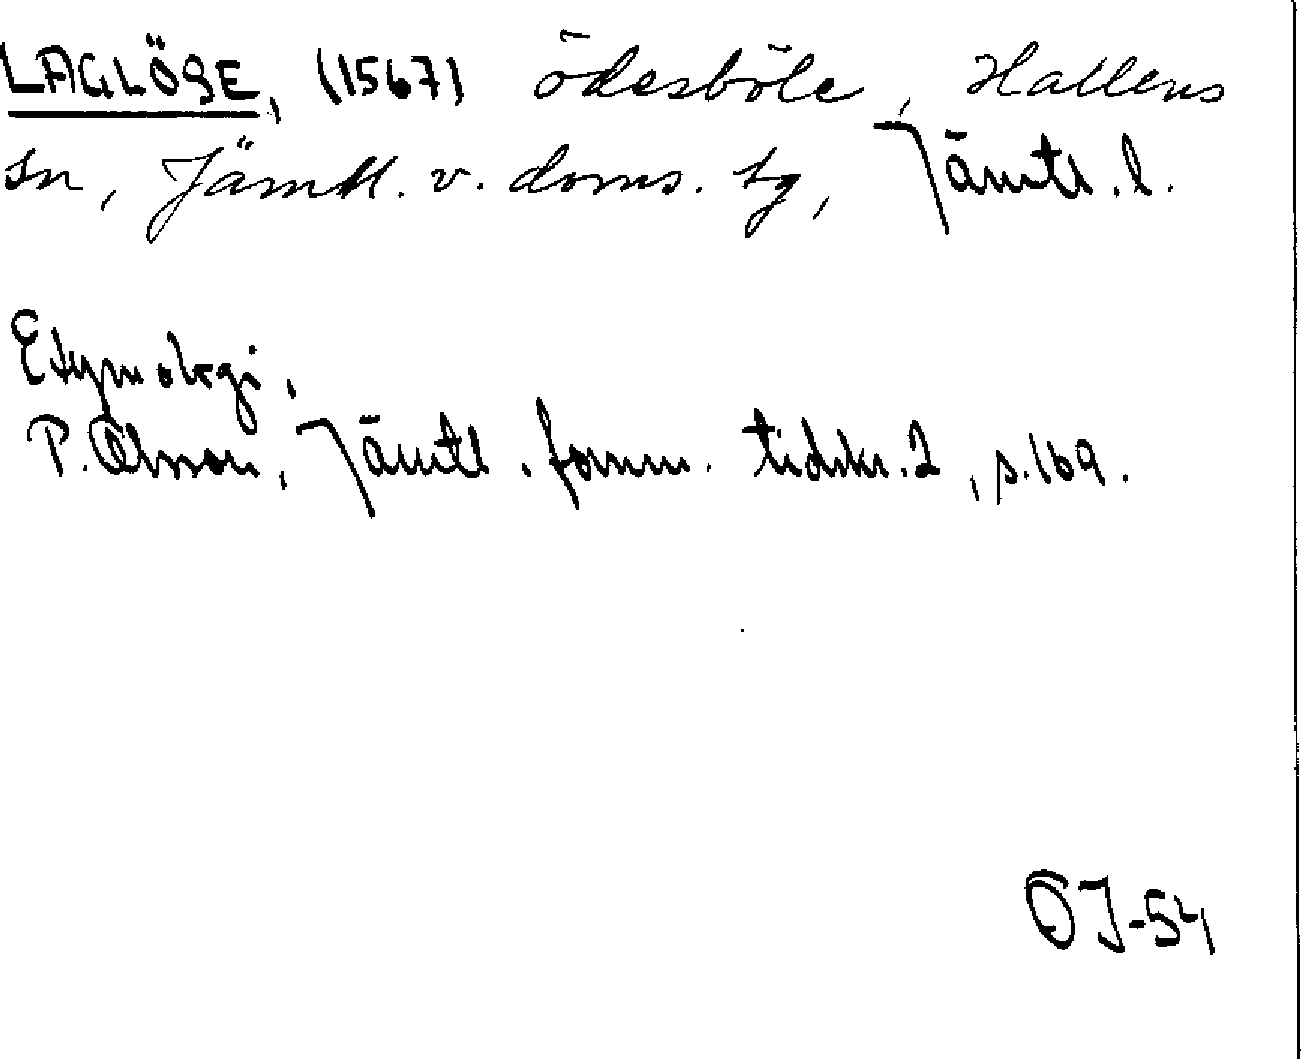 LAGLÖSE, (1567) ödesböle, Hallens
sn, Jämtl. v. doms. tg, Jämtl. l.
Etymologi.
P. Olsson, Jämtl. fornm. tidskr. 2, s. 169.
ÖJ-54